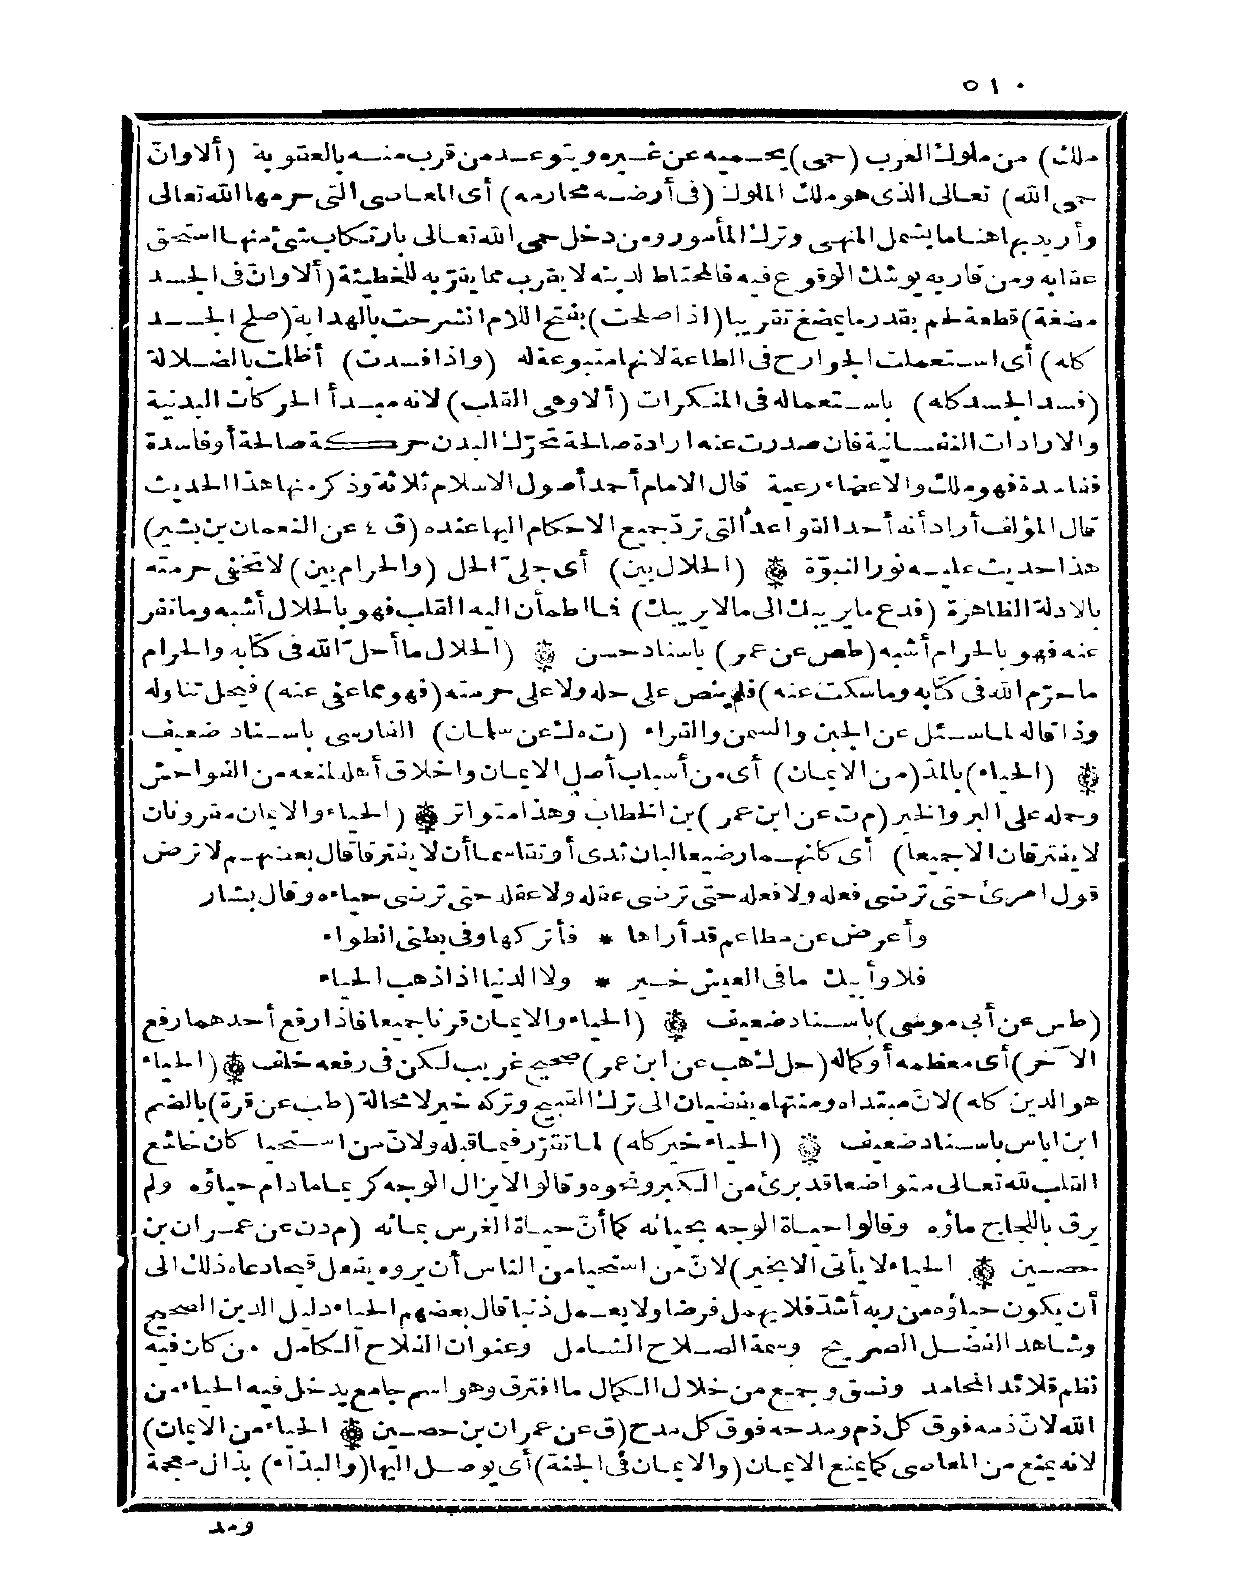 ٥١٠
ملك) من ملوك العرب (حمى) يحميه عن غيره ويتوعد من قرب منه بالعقوبة (ألا وان
حمى الله) تعالى الذى هو ملك الملوك (فى أرضه محارمه) أى المعاصى التى حرمها الله تعالى
وأريد بها هنا ما يشمل المنهى وترك المأمور ومن دخل حمى الله تعالى بارتكاب شئ منها استحق
عقابه ومن قاربه يوشك الوقوع فيه فالمحتاط لدينه لا يقرب مما يقرّبه للخطيئة (ألا وانّ فى الجسد
مضغة) قطعة لحم بقدر ما يمضغ تقريبا (اذا صلحت) بفتح اللام انشرحت بالهداية (صلح الجسد
كله) أى استعملت الجوارح فى الطاعة لانها متبوعة له (واذا فسدت) أظلمت بالضلالة
(فسد الجسد كله) باستعماله فى المنكرات (ألا وهى القلب) لانه مبدأ الحركات البدنية
والارادات النفسانية فان صدرت عنه ارادة صالحة تحرّك البدن حركة صالحة أو فاسدة
ففاسدة فهو ملك والاعضاء رعية قال الامام أحمد أصول الاسلام ثلاثة وذكر منها هذا الحديث
قال المؤلف أراد أنه أحد القواعد التى تردّ جميع الاحكام اليها عنده (ق ٤ عن النعمان بن بشير)
هذا حديث عليه نور النبوّة ۞ (الحلال بين) أى جلىّ الحل (والحرام بين) لا تخفى حرمته
بالادلة الظاهرة (فدع ما يريبك الى ما لا يريبك) فما اطمأن اليه القلب فهو بالحلال أشبه وما نفر
عنه فهو بالحرام أشبه (طص عن عمر) باسناد حسن ۞ (الحلال ما أحلّ الله فى كتابه والحرام
ما حرّم الله فى كتابه وما سكت عنه) فلم ينص على حله ولا على حرمته (فهو مما عفى عنه) فيحل تناوله
وذا قاله لما سئل عن الجبن والسمن والفراء (ت ه ك عن سلمان) الفارسى باسناد ضعيف
۞ (الحياء) بالمدّ (من الايمان) أى من أسباب أصل الايمان واخلاق أهله لمنعه من الفواحش
وحمله على البر والخير (م ت عن ابن عمر) بن الخطاب وهذا متواتر ۞ (الحياء والايمان مقرونان
لا يفترقان الا جميعا) أى كانهما رضيعا لبان ثدى أو تقاسما أن لا يفترقا قال بعضهم لا ترض
قول امرئ حتى ترضى فعله ولا فعله حتى ترضى عقله ولا عقله حتى ترضى حياءه وقال بشار
وأعرض عن مطاعم قد أراها * فأتركها وفى بطنى انطواء
فلا وأبيك ما فى العيش خير * ولا الدنيا اذا ذهب الحياء
(طس عن أبى موسى) باسناد ضعيف ۞ (الحياء والايمان قرنا جميعا فاذا رفع أحدهما رفع
الآخر) أى معظمه أو كماله (حل ك هب عن ابن عمر) صحيح غريب لكن فى رفعه خلف ۞ (الحياء
هو الدين كله) لانّ مبتداه ومنتهاه يفضيان الى ترك القبيح وتركه خير لا محالة (طب عن قرة) بالضم
ابن اياس باسناد ضعيف ۞ (الحياء خير كله) لما تقرّر فيما قبله ولانّ من استحيا كان خاشع
القلب لله تعالى متواضعا قد برئ من الكبر ونحوه وقالوا لا يزال الوجه كريما ما دام حياؤه ولم
يرق باللجاج ماؤه وقالوا حياة الوجه بحيائه كما أنّ حياة الغرس بمائه (م د ن عن عمران بن
حصين ۞ الحياء لا يأتى الا بخير) لانّ من استحيا من الناس أن يروه يفعل قبيحا دعاه ذلك الى
أن يكون حياؤه من ربه أشدّ فلا يهمل فرضا ولا يعمل ذنبا قال بعضهم الحياء دليل الدين الصحيح
وشاهد الفضل الصريح وسمة الصلاح الشامل وعنوان الفلاح الكامل من كان فيه
نظم قلائد المحامد ونسق وجمع من خلال الكمال ما افترق وهو اسم جامع يدخل فيه الحياء من
الله لانّ ذمه فوق كل ذم ومدحه فوق كل مدح (ق عن عمران بن حصين ۞ الحياء من الايمان)
لانه يمنع من المعاصى كما يمنع الايمان (والايمان فى الجنة) أى يوصل اليها (والبذاء) بذال معجمة
ومد